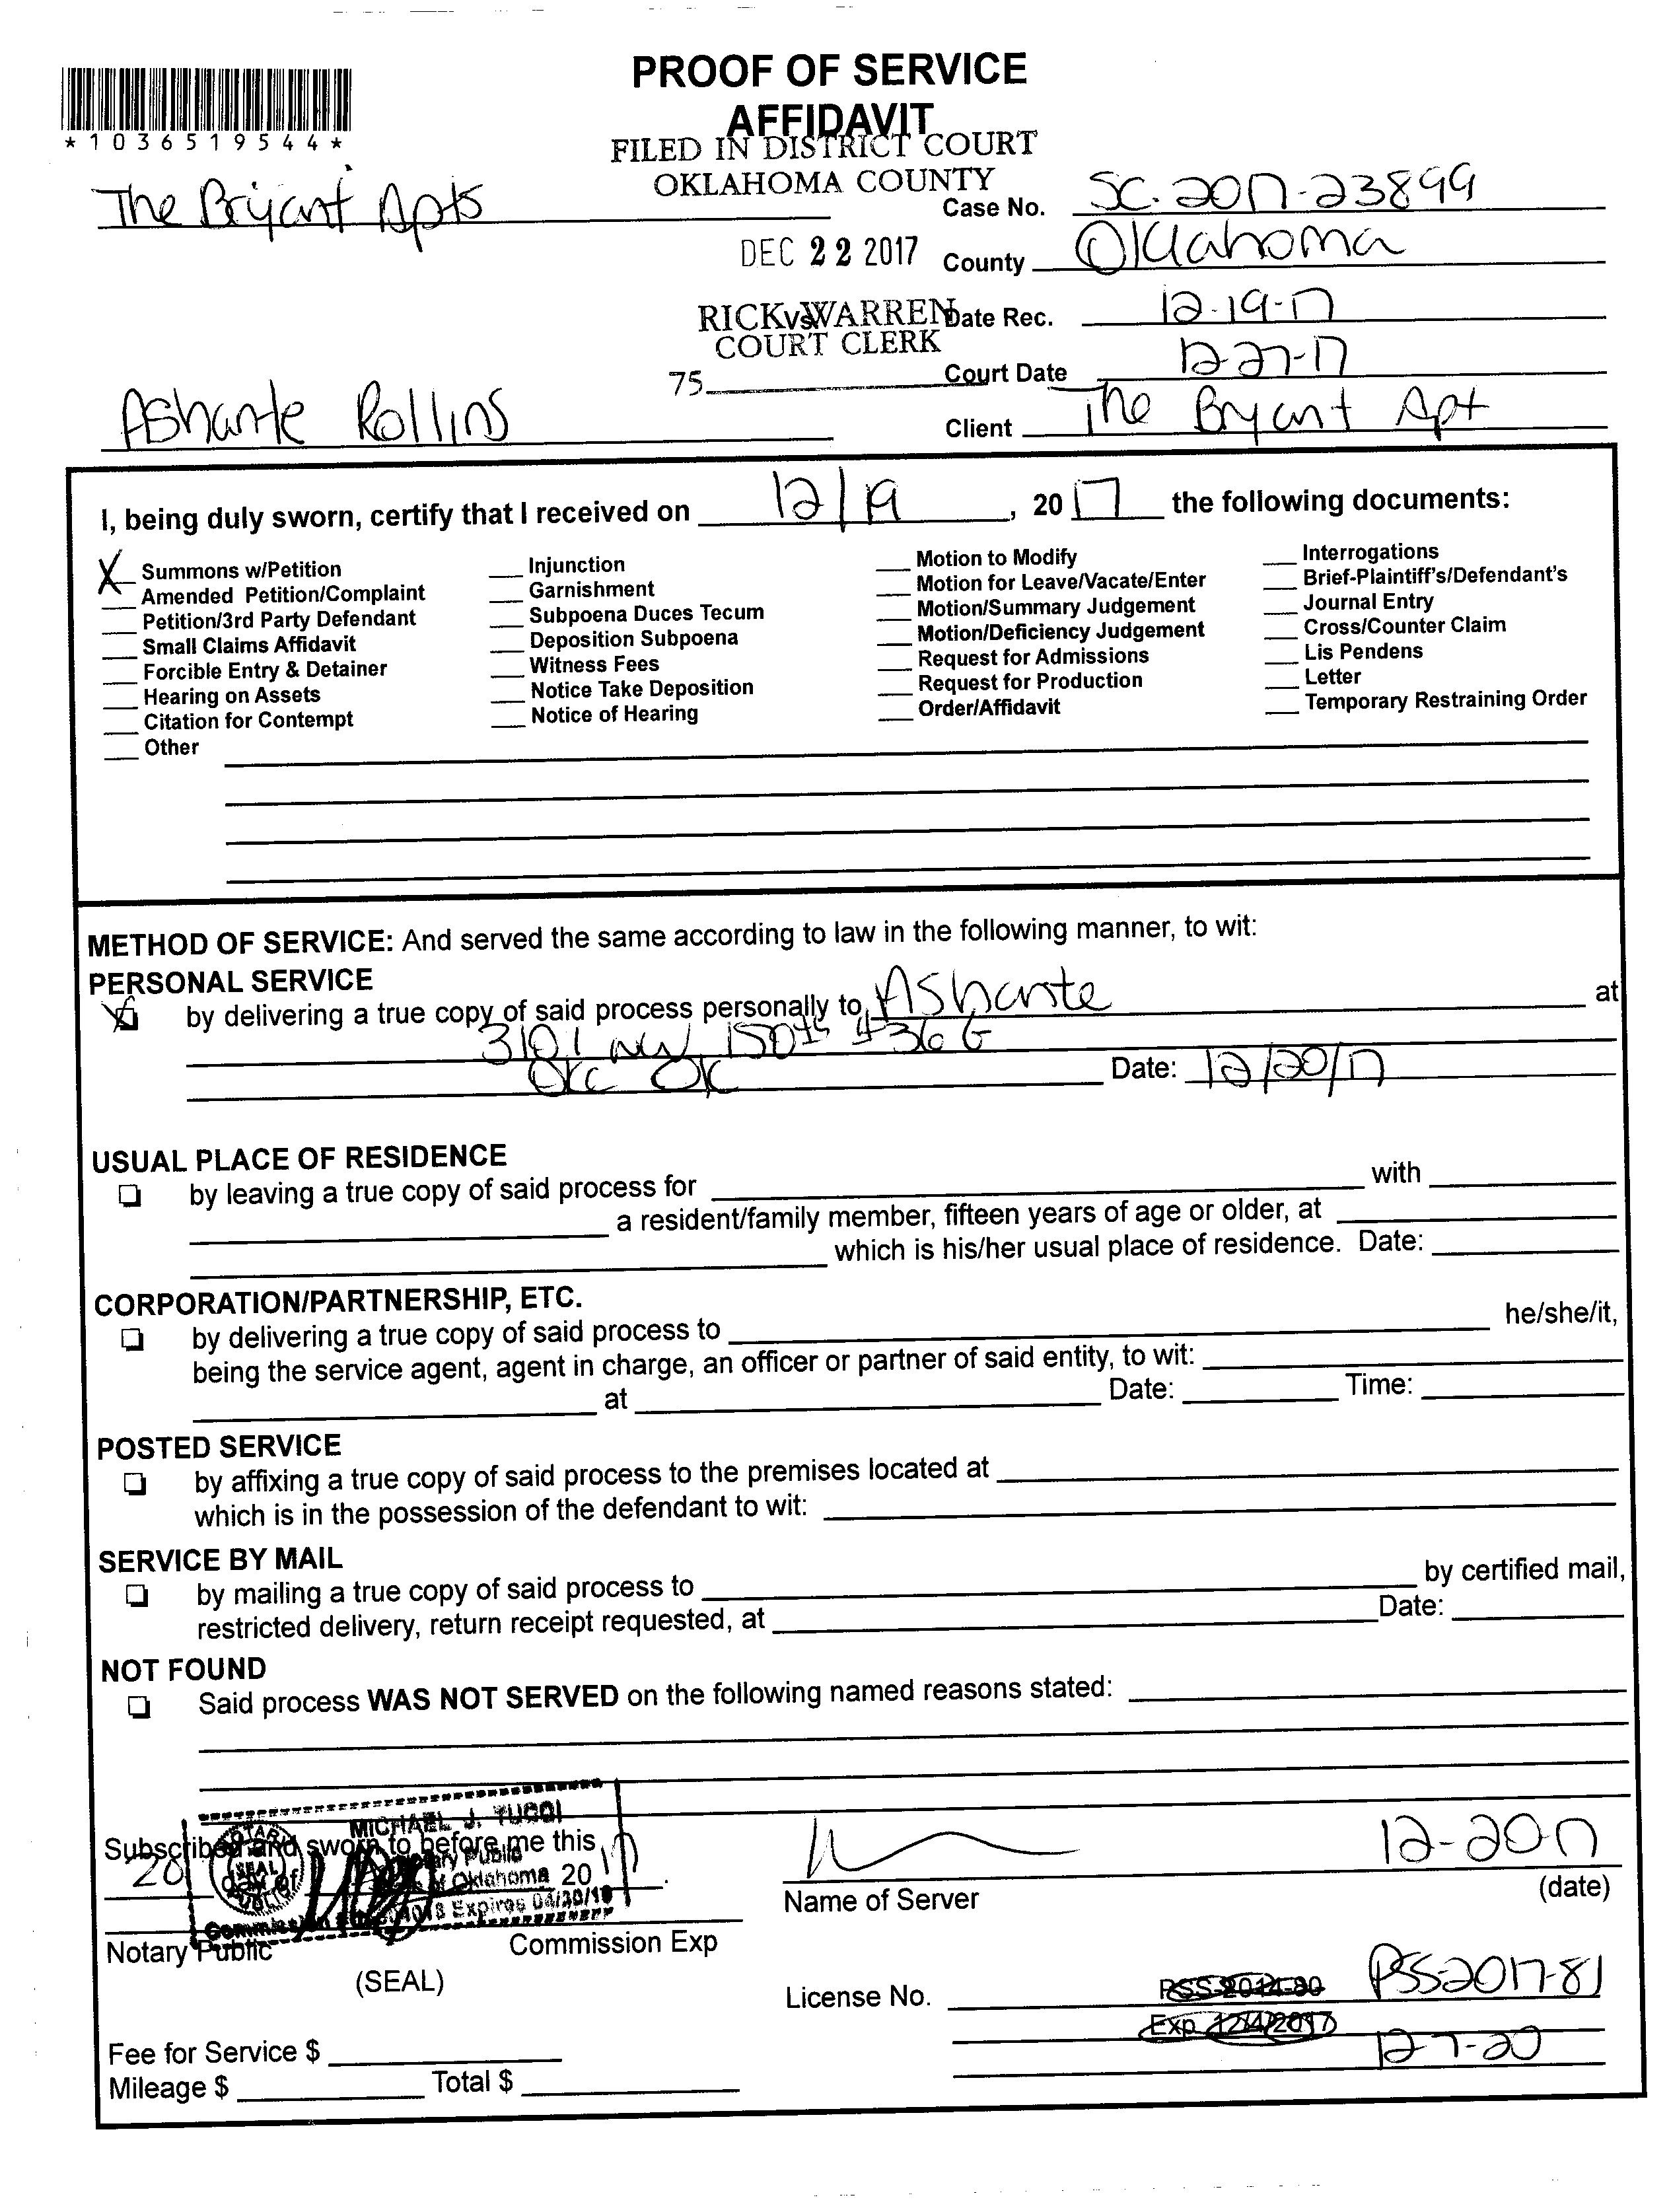 PROOF OF SERVICE
AFFIDAVIT
*1036519544*
FILED IN DISTRICT COURT
OKLAHOMA COUNTY
The Bryant Apts
Case No. SC-2017-23899
DEC 22 2017
County Oklahoma
RICK WARREN
vs
Date Rec. 12-19-17
COURT CLERK
Court Date 12-27-17
75
Ashante Rollins
Client The Bryant Apt
I, being duly sworn, certify that I received on 12/19, 2017 the following documents:
X Summons w/Petition
Amended Petition/Complaint
Petition/3rd Party Defendant
Small Claims Affidavit
Forcible Entry & Detainer
Hearing on Assets
Citation for Contempt
Other
Injunction
Garnishment
Subpoena Duces Tecum
Deposition Subpoena
Witness Fees
Notice Take Deposition
Notice of Hearing
Motion to Modify
Motion for Leave/Vacate/Enter
Motion/Summary Judgement
Motion/Deficiency Judgement
Request for Admissions
Request for Production
Order/Affidavit
Interrogations
Brief-Plaintiff's/Defendant's
Journal Entry
Cross/Counter Claim
Lis Pendens
Letter
Temporary Restraining Order
METHOD OF SERVICE: And served the same according to law in the following manner, to wit:
PERSONAL SERVICE
by delivering a true copy of said process personally to Ashante at
3101 NW 150th #36 G
OKC OK Date: 12/20/17
USUAL PLACE OF RESIDENCE
by leaving a true copy of said process for with
a resident/family member, fifteen years of age or older, at
which is his/her usual place of residence. Date:
CORPORATION/PARTNERSHIP, ETC.
by delivering a true copy of said process to he/she/it,
being the service agent, agent in charge, an officer or partner of said entity, to wit:
at Date: Time:
POSTED SERVICE
by affixing a true copy of said process to the premises located at
which is in the possession of the defendant to wit:
SERVICE BY MAIL
by mailing a true copy of said process to by certified mail,
restricted delivery, return receipt requested, at Date:
NOT FOUND
Said process WAS NOT SERVED on the following named reasons stated:
MICHAEL J. TUCCI
Subscribed and sworn to before me this
Notary Public
20 day of Oklahoma 20 17
Expires 04/30/18
NOTARY
SEAL
PUBLIC
12-20-17
Name of Server (date)
Notary Public Commission Exp
(SEAL)
License No. PSS-2014-80 PSS-2017-81
Exp 12/4/2017
12-7-20
Fee for Service $
Mileage $ Total $